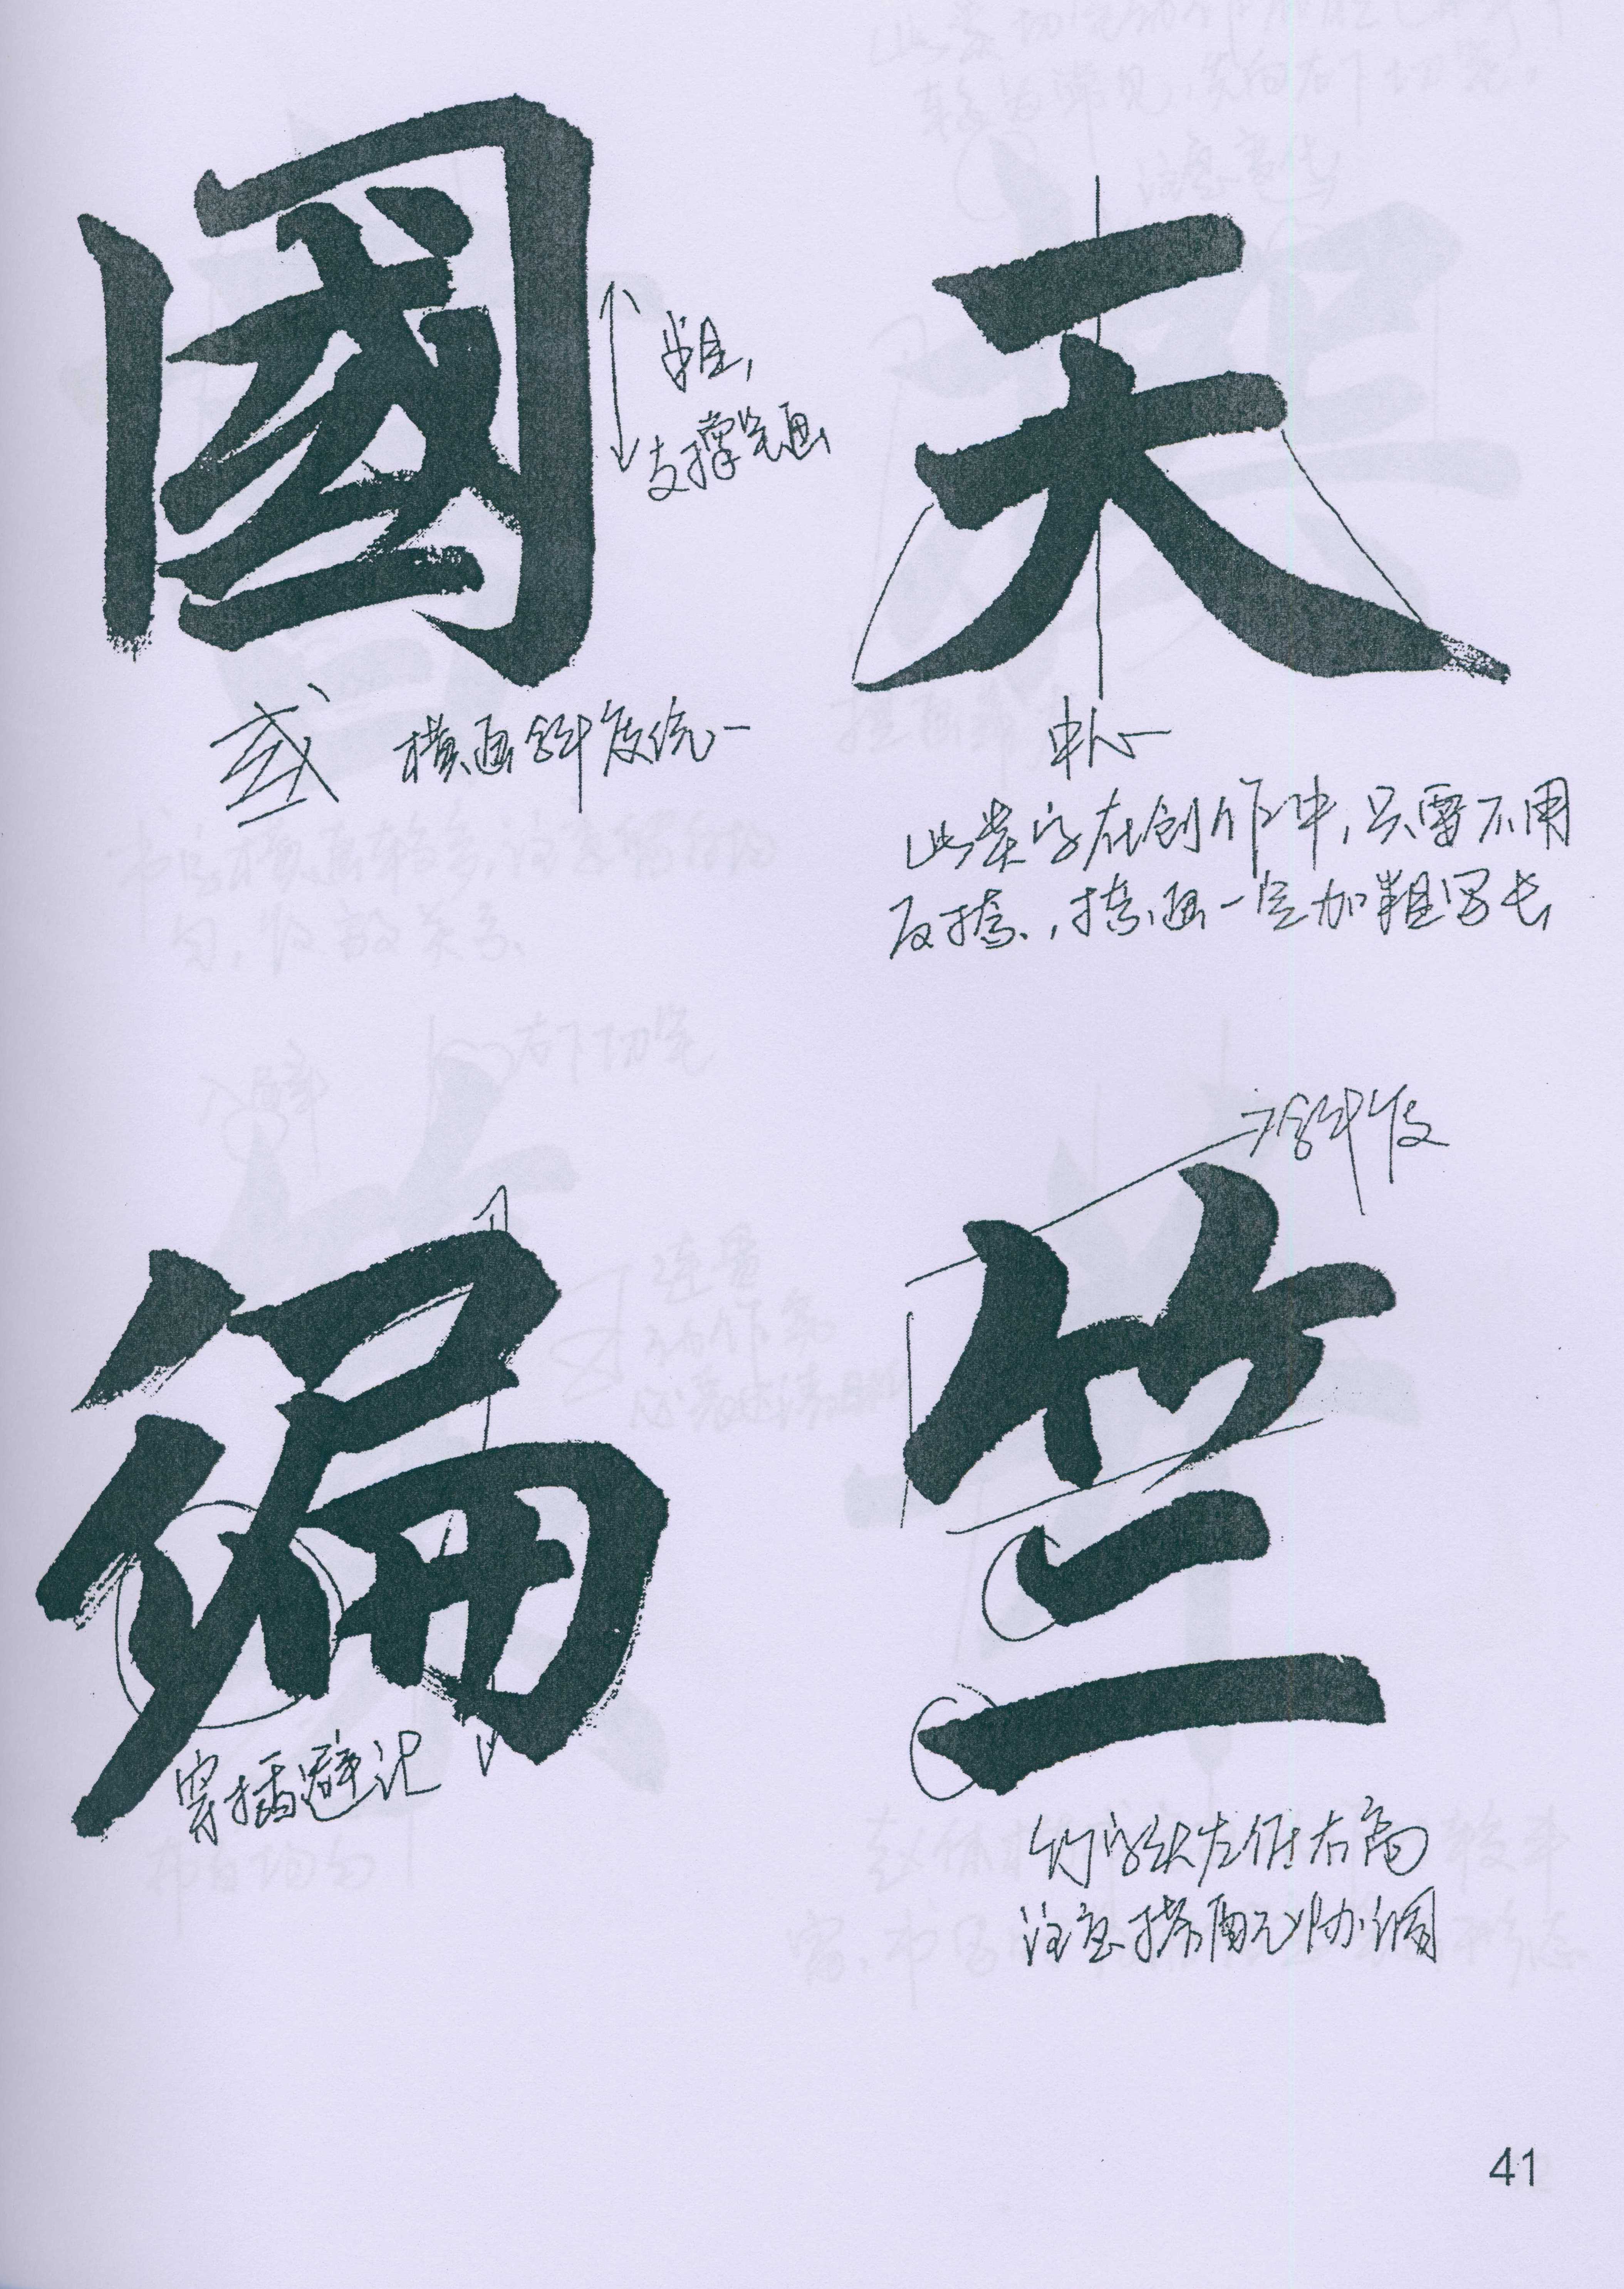 國
粗,
支撑笔画
或 横画斜度统一
天
中心
此类字在创作中,只要不用
反捺,捺画一定加粗写长
编
穿插避让
竺
斜度
竹字头左低右高
注意搭配协调
41